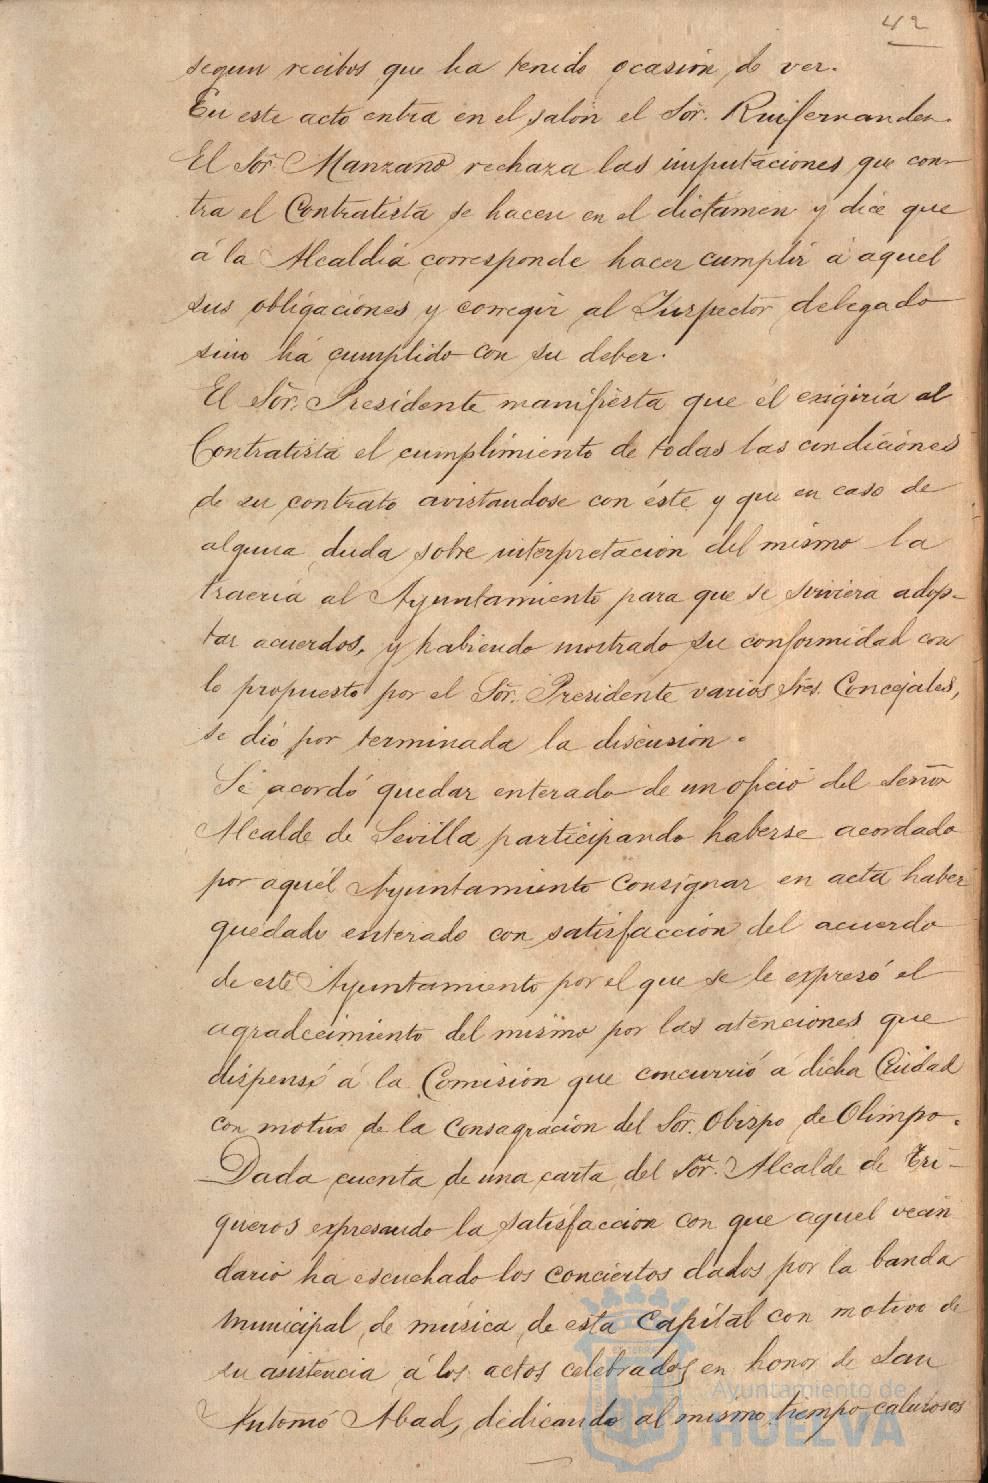 42
segun recibos que ha tenido ocasión de ver.
En este acto entra en el salón el Sor. Ruifernandez.
El Sor. Manzano rechaza las imputaciones que con-
tra el Contratista se hacen en el dictámen y dice que
á la Alcaldía corresponde hacer cumplir á aquel
sus obligaciones y corregir al Inspector delegado
sino há cumplido con su deber.
El Sor. Presidente manifiesta que él exigiría al
Contratista el cumplimiento de todas las condiciones
de su contrato avistandose con éste y que en caso de
alguna duda sobre interpretacion del mismo la
traería al Ayuntamiento para que se sirviera adop-
tar acuerdos, y habiendo mostrado su conformidad con
lo propuesto por el Sor. Presidente varios Sres. Concejales,
se dió por terminada la discusion.
Se acordó quedar enterado de un oficio del Señor
Alcalde de Sevilla participando haberse acordado
por aquél Ayuntamiento consignar en acta haber
quedado enterado con satisfaccion del acuerdo
de este Ayuntamiento por el que se le expresó el
agradecimiento del mismo por las atenciones que
dispensó á la Comision que concurrió á dicha Ciudad
con motivo de la Consagración del Sor. Obispo de Olimpo.
Dada cuenta de una carta del Sor. Alcalde de Tri-
gueros expresando la satisfaccion con que aquel vecin
dario ha escuchado los conciertos dados por la banda
municipal de música de esta Capital con motivo de
su asistencia á los actos celebrados en honor de San
Antonio Abad, dedicando al mismo tiempo calurosos
Ayuntamiento de
HUELVA